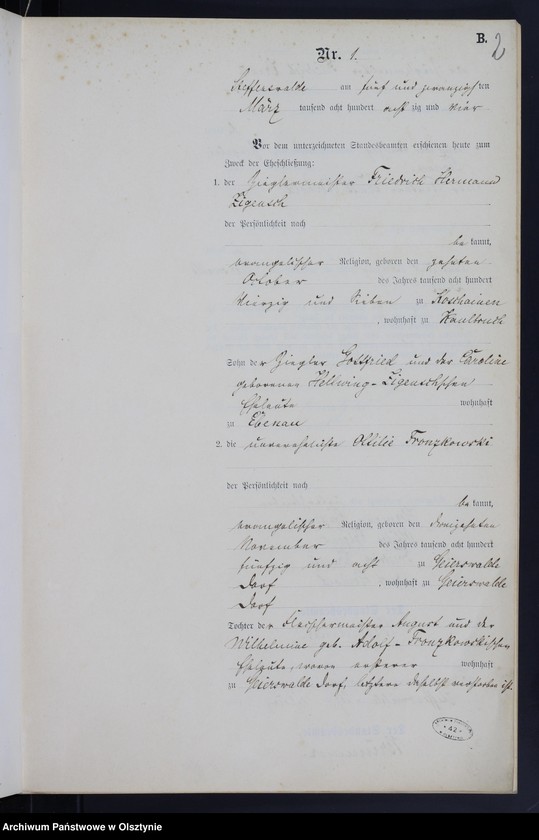 B.
2
Nr. 1.
Steffenswalde am fünf und zwanzigsten
März tausend acht hundert achtzig und vier
Vor dem unterzeichneten Standesbeamten erschienen heute zum
Zweck der Eheschließung:
1. der Zieglermeister Friedrich Hermann
Zigensch
der Persönlichkeit nach
bekannt,
evangelischer Religion, geboren den zehnten
October des Jahres tausend acht hundert
vierzig und sieben zu Koschainen
, wohnhaft zu
Sohn der Ziegler Gottfried und der Caroline
geborenen Hellwing-Zigenschschen
Eheleute wohnhaft
zu Ebenau
2. die unverehelichte Ottilie Fronzkowski
der Persönlichkeit nach
bekannt,
evangelischer Religion, geboren den dreizehnten
November des Jahres tausend acht hundert
fünfzig und acht zu Geierswalde
Dorf , wohnhaft zu Geierswalde
Dorf
Tochter der Fleischermeister August und der
Wilhelmine geb. Adolf-Fronzkowskischen
Eheleute, wovon ersterer wohnhaft
zu Geierswalde Dorf, letztere daselbst verstorben ist.
42
Archiwum Państwowe w Olsztynie